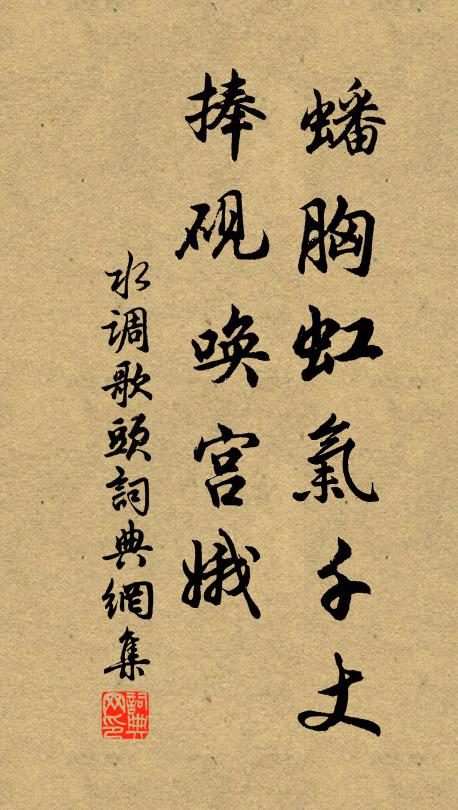 蟠胸虹氣千丈
捧硯唤宫娥
水调歌頭詞典網集
詞典网印